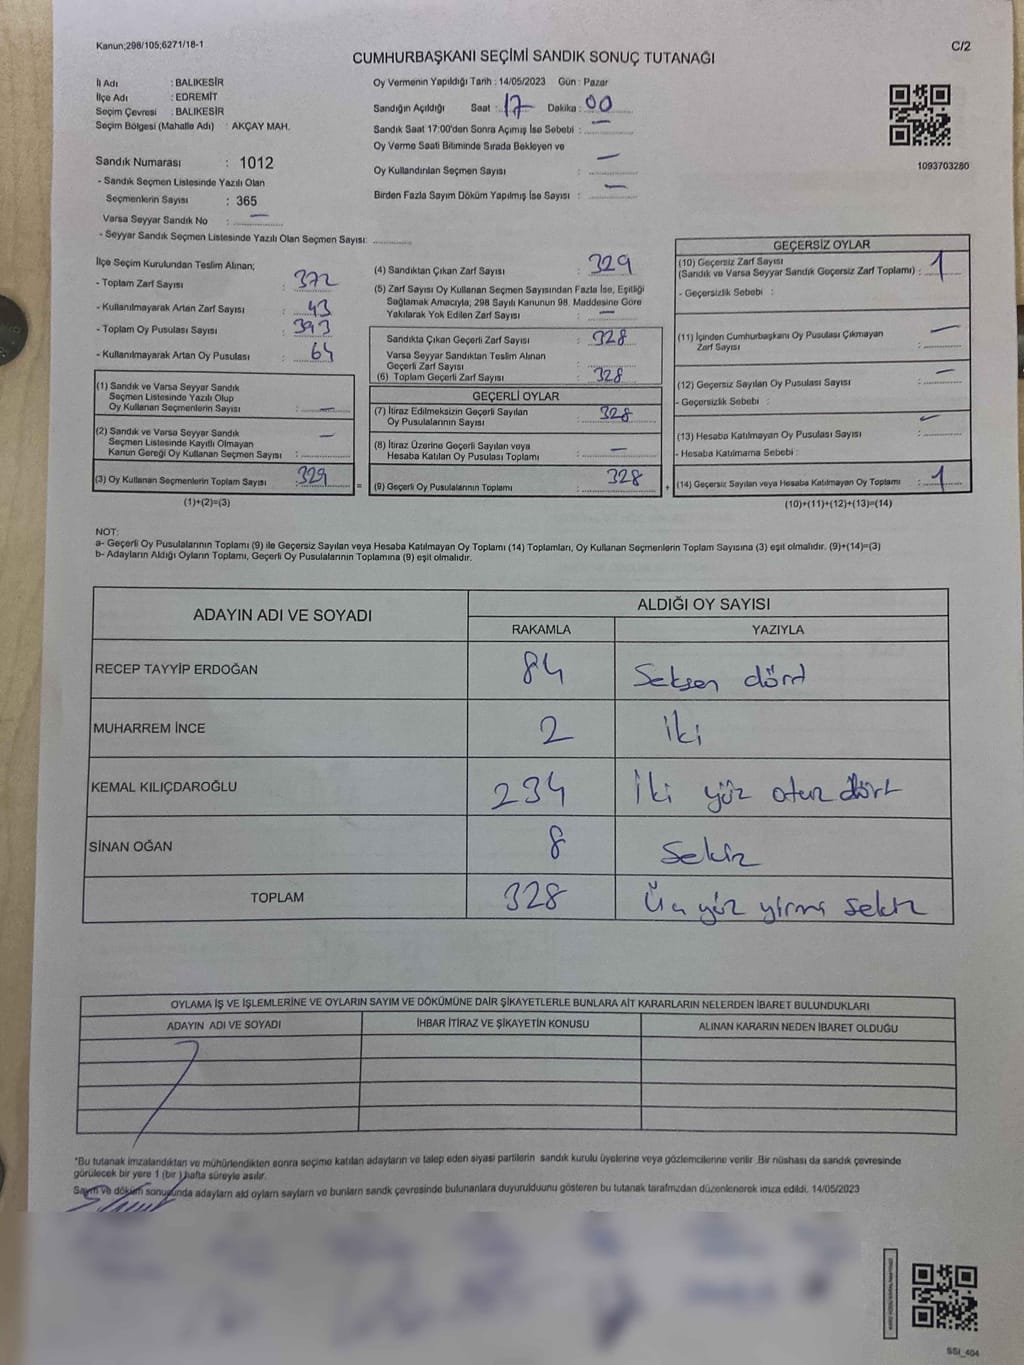 Kanun;298/105;6271/18-1
C/2
CUMHURBAŞKANI SEÇİMİ SANDIK SONUÇ TUTANAĞI
İl Adı : BALIKESİR
İlçe Adı : EDREMİT
Seçim Çevresi : BALIKESİR
Seçim Bölgesi (Mahalle Adı) : AKÇAY MAH.
Sandık Numarası : 1012
- Sandık Seçmen Listesinde Yazılı Olan
Seçmenlerin Sayısı : 365
Varsa Seyyar Sandık No : —
- Seyyar Sandık Seçmen Listesinde Yazılı Olan Seçmen Sayısı:
Oy Vermenin Yapıldığı Tarih : 14/05/2023 Gün : Pazar
Sandığın Açıldığı Saat : 17 Dakika : 00
Sandık Saat 17:00'den Sonra Açımış İse Sebebi : —
Oy Verme Saati Bitiminde Sırada Bekleyen ve
Oy Kullandırılan Seçmen Sayısı : —
Birden Fazla Sayım Döküm Yapılmış İse Sayısı : —
1093703280
İlçe Seçim Kurulundan Teslim Alınan;
- Toplam Zarf Sayısı : 372
- Kullanılmayarak Artan Zarf Sayısı : 43
- Toplam Oy Pusulası Sayısı : 393
- Kullanılmayarak Artan Oy Pusulası : 64
(1) Sandık ve Varsa Seyyar Sandık
Seçmen Listesinde Yazılı Olup
Oy Kullanan Seçmenlerin Sayısı : —
(2) Sandık ve Varsa Seyyar Sandık
Seçmen Listesinde Kayıtlı Olmayan
Kanun Gereği Oy Kullanan Seçmen Sayısı : —
(3) Oy Kullanan Seçmenlerin Toplam Sayısı : 329
(1)+(2)=(3)
=
(4) Sandıktan Çıkan Zarf Sayısı : 329
(5) Zarf Sayısı Oy Kullanan Seçmen Sayısından Fazla İse, Eşitliği
Sağlamak Amacıyla; 298 Sayılı Kanunun 98. Maddesine Göre
Yakılarak Yok Edilen Zarf Sayısı : —
Sandıkta Çıkan Geçerli Zarf Sayısı : 328
Varsa Seyyar Sandıktan Teslim Alınan
Geçerli Zarf Sayısı :
(6) Toplam Geçerli Zarf Sayısı : 328
GEÇERLİ OYLAR
(7) İtiraz Edilmeksizin Geçerli Sayılan
Oy Pusulalarının Sayısı : 328
(8) İtiraz Üzerine Geçerli Sayılan veya
Hesaba Katılan Oy Pusulası Toplamı : —
(9) Geçerli Oy Pusulalarının Toplamı : 328
+
GEÇERSİZ OYLAR
(10) Geçersiz Zarf Sayısı
(Sandık ve Varsa Seyyar Sandık Geçersiz Zarf Toplamı) : 1
- Geçersizlik Sebebi :
(11) İçinden Cumhurbaşkanı Oy Pusulası Çıkmayan
Zarf Sayısı : —
(12) Geçersiz Sayılan Oy Pusulası Sayısı : —
- Geçersizlik Sebebi :
(13) Hesaba Katılmayan Oy Pusulası Sayısı : —
- Hesaba Katılmama Sebebi :
(14) Geçersiz Sayılan veya Hesaba Katılmayan Oy Toplamı : 1
(10)+(11)+(12)+(13)=(14)
NOT:
a- Geçerli Oy Pusulalarının Toplamı (9) ile Geçersiz Sayılan veya Hesaba Katılmayan Oy Toplamı (14) Toplamları, Oy Kullanan Seçmenlerin Toplam Sayısına (3) eşit olmalıdır. (9)+(14)=(3)
b- Adayların Aldığı Oyların Toplamı, Geçerli Oy Pusulalarının Toplamına (9) eşit olmalıdır.
ADAYIN ADI VE SOYADI
ALDIĞI OY SAYISI
RAKAMLA YAZIYLA
RECEP TAYYİP ERDOĞAN 84 Seksen dört
MUHARREM İNCE 2 İki
KEMAL KILIÇDAROĞLU 234 İki yüz otuz dört
SİNAN OĞAN 8 Sekiz
TOPLAM 328 Üç yüz yirmi sekiz
OYLAMA İŞ VE İŞLEMLERİNE VE OYLARIN SAYIM VE DÖKÜMÜNE DAİR ŞİKAYETLERLE BUNLARA AİT KARARLARIN NELERDEN İBARET BULUNDUKLARI
ADAYIN ADI VE SOYADI İHBAR İTİRAZ VE ŞİKAYETİN KONUSU ALINAN KARARIN NEDEN İBARET OLDUĞU
*Bu tutanak imzalandıktan ve mühürlendikten sonra seçime katılan adayların ve talep eden siyasi partilerin sandık kurulu üyelerine veya gözlemcilerine verilir .Bir nüshası da sandık çevresinde
görülecek bir yere 1 (bir ) hafta süreyle asılır.
Sayım ve döküm sonuşunda adayların ald oyların saylarn ve bunların sandk çevresinde bulunanlara duyurulduunu gösteren bu tutanak tarafmzdan düzenlenerek imza edildi. 14/05/2023
SSI_404